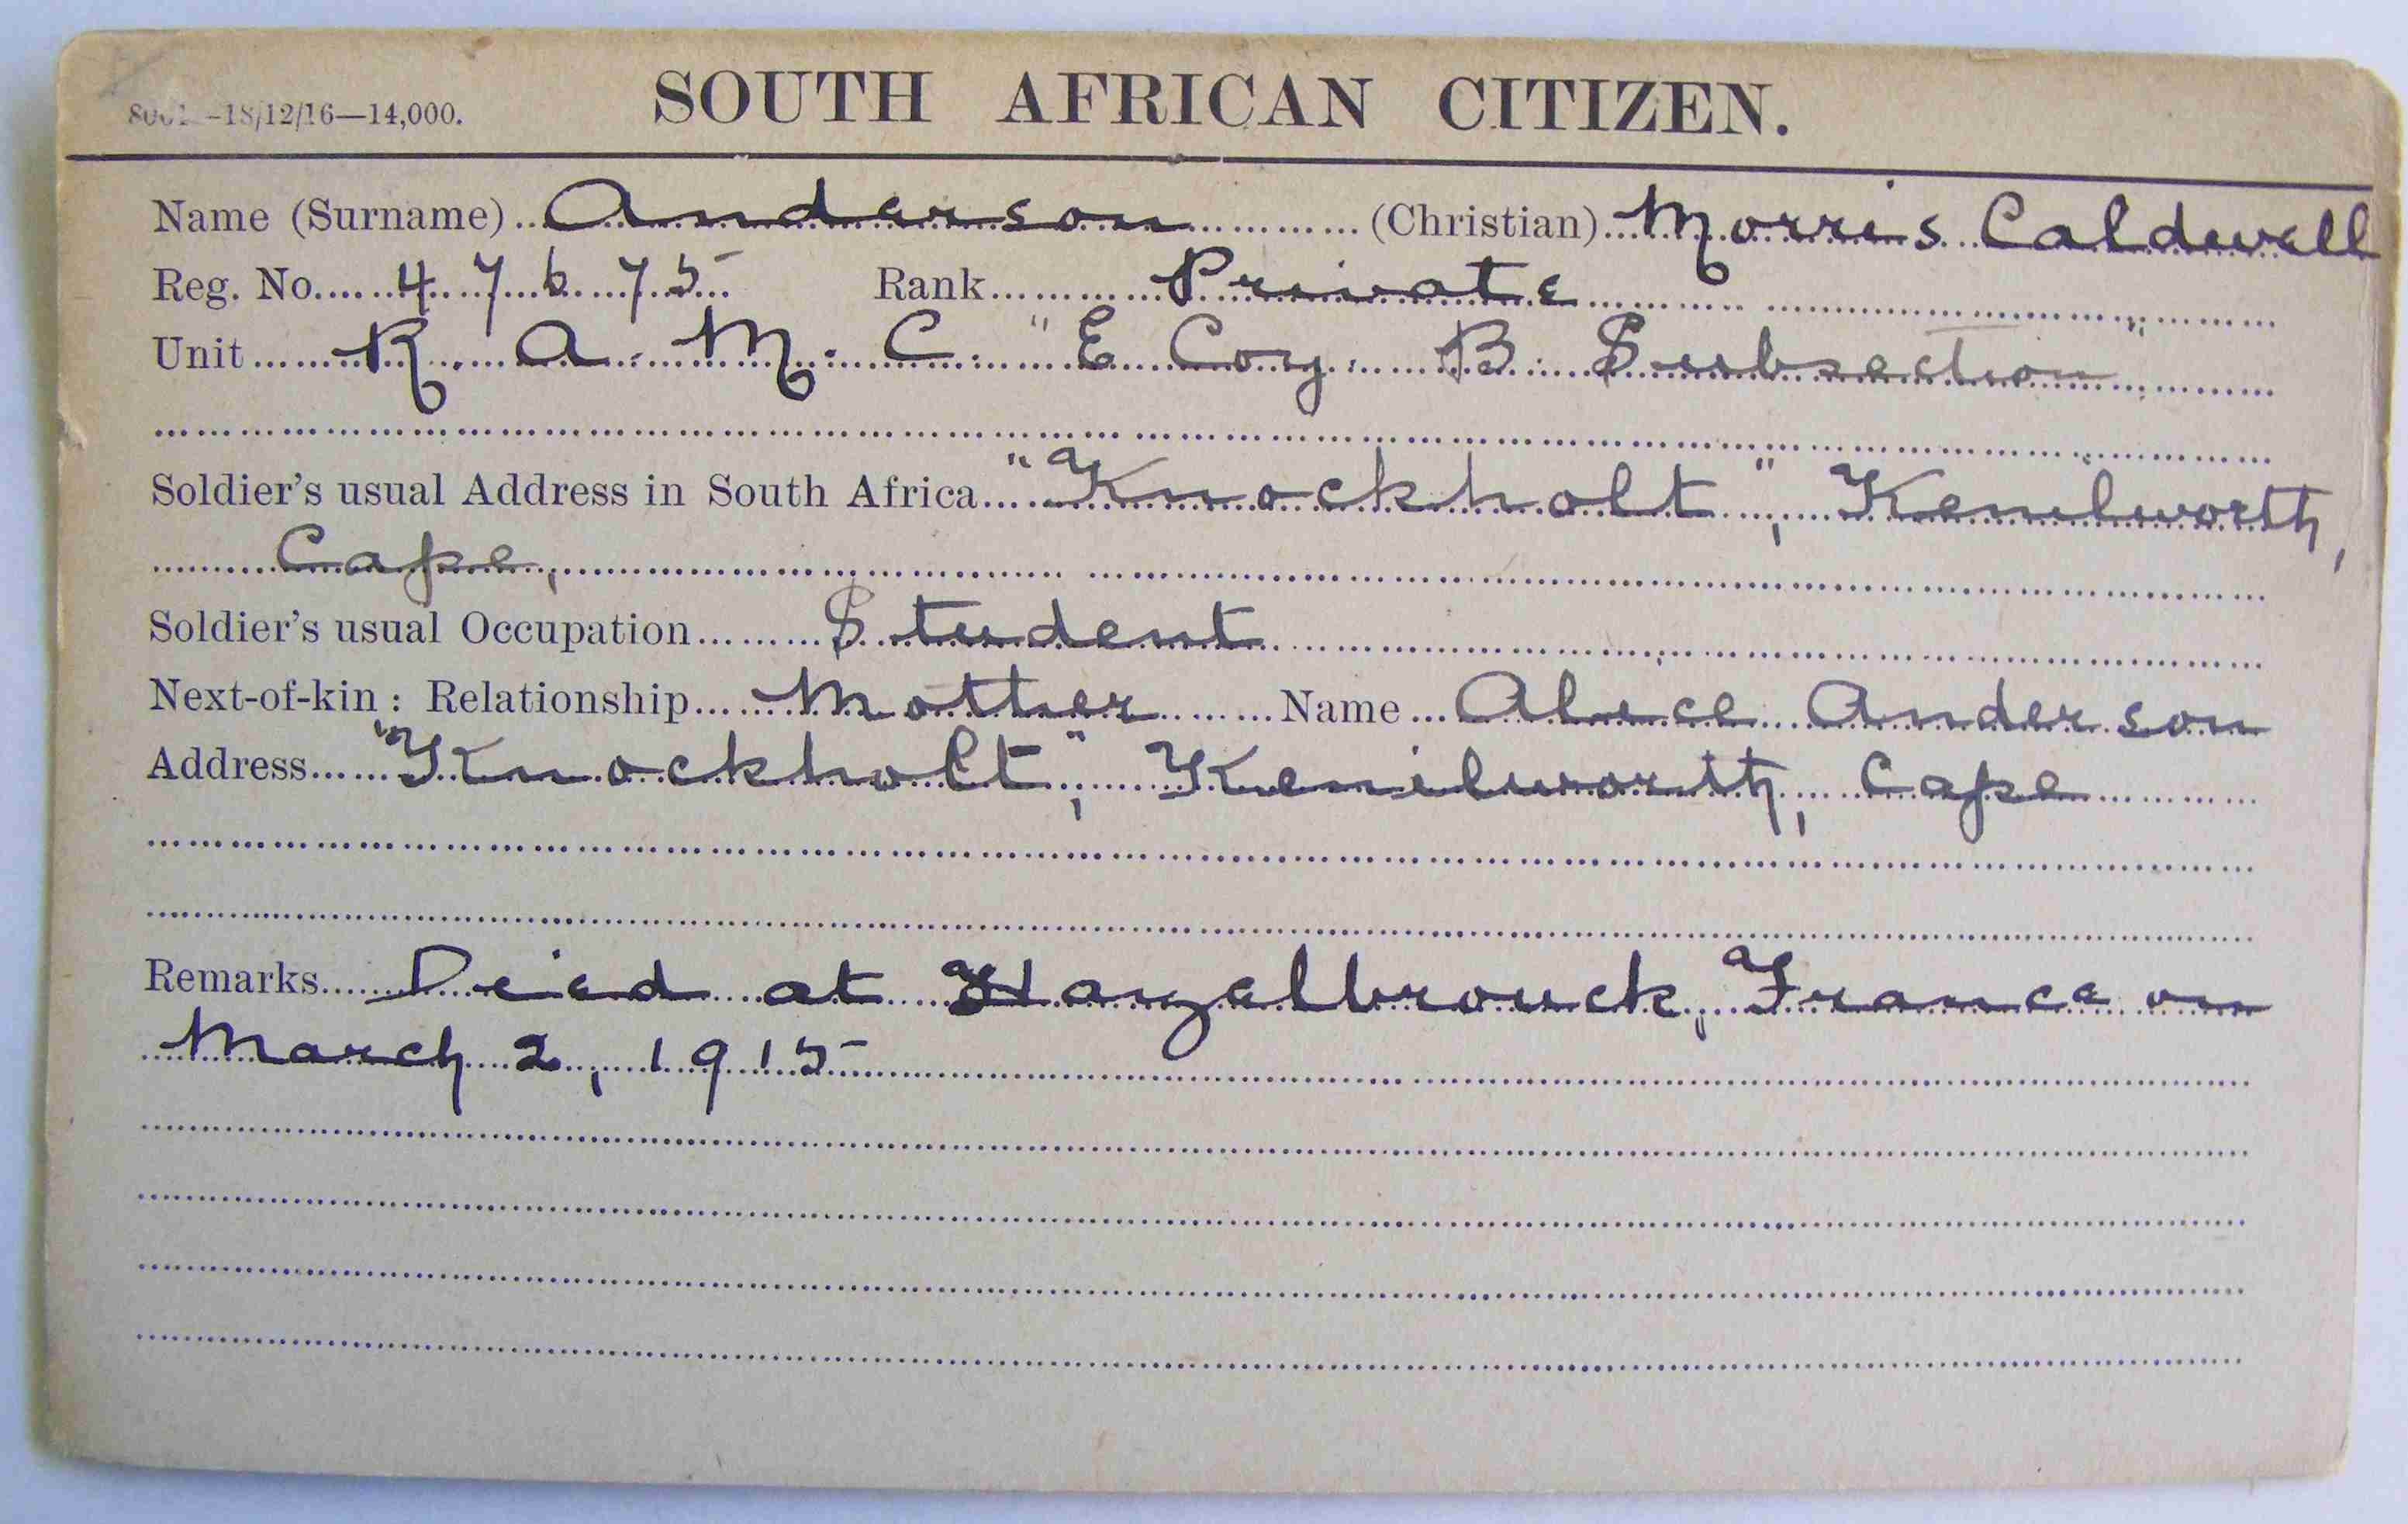 -18/12/16—14,000.
SOUTH AFRICAN CITIZEN.
Name (Surname) Anderson (Christian) Morris Caldwell
Reg. No. 47675 Rank Private
Unit R. A. M. C. "E Coy. B. Subsection"
Soldier's usual Address in South Africa "Knockholt", Kenilworth,
Cape,
Soldier's usual Occupation Student
Next-of-kin: Relationship Mother Name Alice Anderson
Address "Knockholt", Kenilworth, Cape
Remarks Died at Hazelbrouck, France on
March 2, 1915